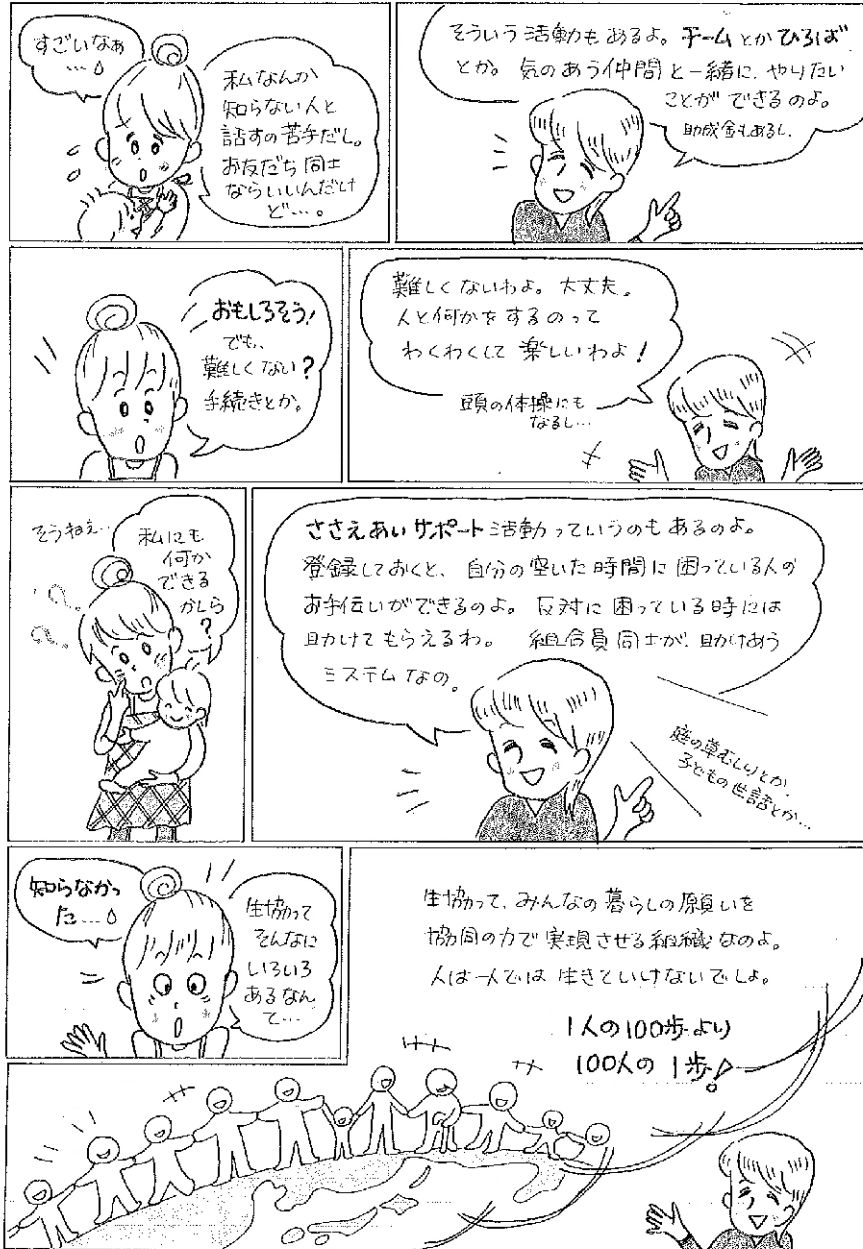 すごいなぁ
…
私なんか
知らない人と
話すの苦手だし。
お友だち同士
ならいいんだけ
ど…。
そういう活動もあるよ。チームとかひろば
とか。気のあう仲間と一緒に、やりたい
ことができるのよ。
助成金もあるし、
おもしろそう!
でも、
難しくない?
手続きとか。
難しくないわよ。大丈夫。
人と何かをするのって
わくわくして楽しいわよ!
頭の体操にも
なるし…
そうねぇ…
私にも
何か
できる
かしら
?
ささえあいサポート活動っていうのもあるのよ。
登録しておくと、自分の空いた時間に困っている人の
お手伝いができるのよ。反対に困っている時には
助けてもらえるわ。組合員同士が、助けあう
システムなの。
庭の草むしりとか、
子どもの世話とか…
知らなかっ
た…
生協って
そんなに
いろいろ
あるなん
て…
生協って、みんなの暮らしの願いを
協同の力で実現させる組織なのよ。
人は一人では生きていけないでしょ。
1人の100歩より
100人の1歩!